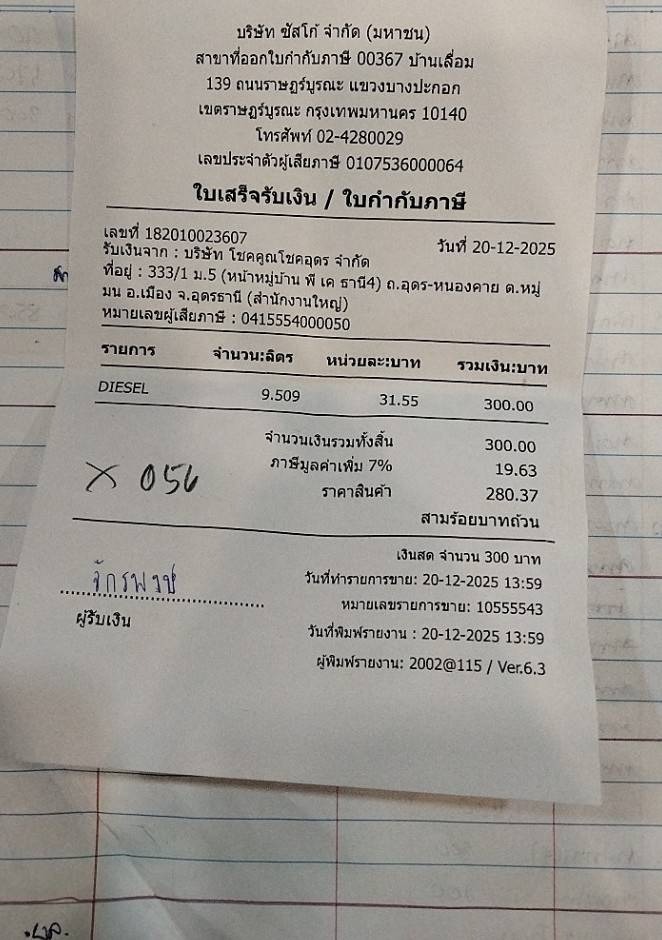 บริษัท ซัสโก้ จำกัด (มหาชน)
สาขาที่ออกใบกำกับภาษี 00367 บ้านเลื่อม
139 ถนนราษฎร์บูรณะ แขวงบางปะกอก
เขตราษฎร์บูรณะ กรุงเทพมหานคร 10140
โทรศัพท์ 02-4280029
เลขประจำตัวผู้เสียภาษี 0107536000064
ใบเสร็จรับเงิน / ใบกำกับภาษี
เลขที่ 182010023607 วันที่ 20-12-2025
รับเงินจาก : บริษัท โชคคูณโชคอุดร จำกัด
ที่อยู่ : 333/1 ม.5 (หน้าหมู่บ้าน พี เค ธานี4) ถ.อุดร-หนองคาย ต.หมู่
มน อ.เมือง จ.อุดรธานี (สำนักงานใหญ่)
หมายเลขผู้เสียภาษี : 0415554000050
รายการ จำนวน:ลิตร หน่วยละ:บาท รวมเงิน:บาท
DIESEL 9.509 31.55 300.00
จำนวนเงินรวมทั้งสิ้น 300.00
ภาษีมูลค่าเพิ่ม 7% 19.63
ราคาสินค้า 280.37
X 056
สามร้อยบาทถ้วน
เงินสด จำนวน 300 บาท
วันที่ทำรายการขาย: 20-12-2025 13:59
จักรพงษ์
หมายเลขรายการขาย: 10555543
ผู้รับเงิน
วันที่พิมพ์รายงาน : 20-12-2025 13:59
ผู้พิมพ์รายงาน: 2002@115 / Ver.6.3